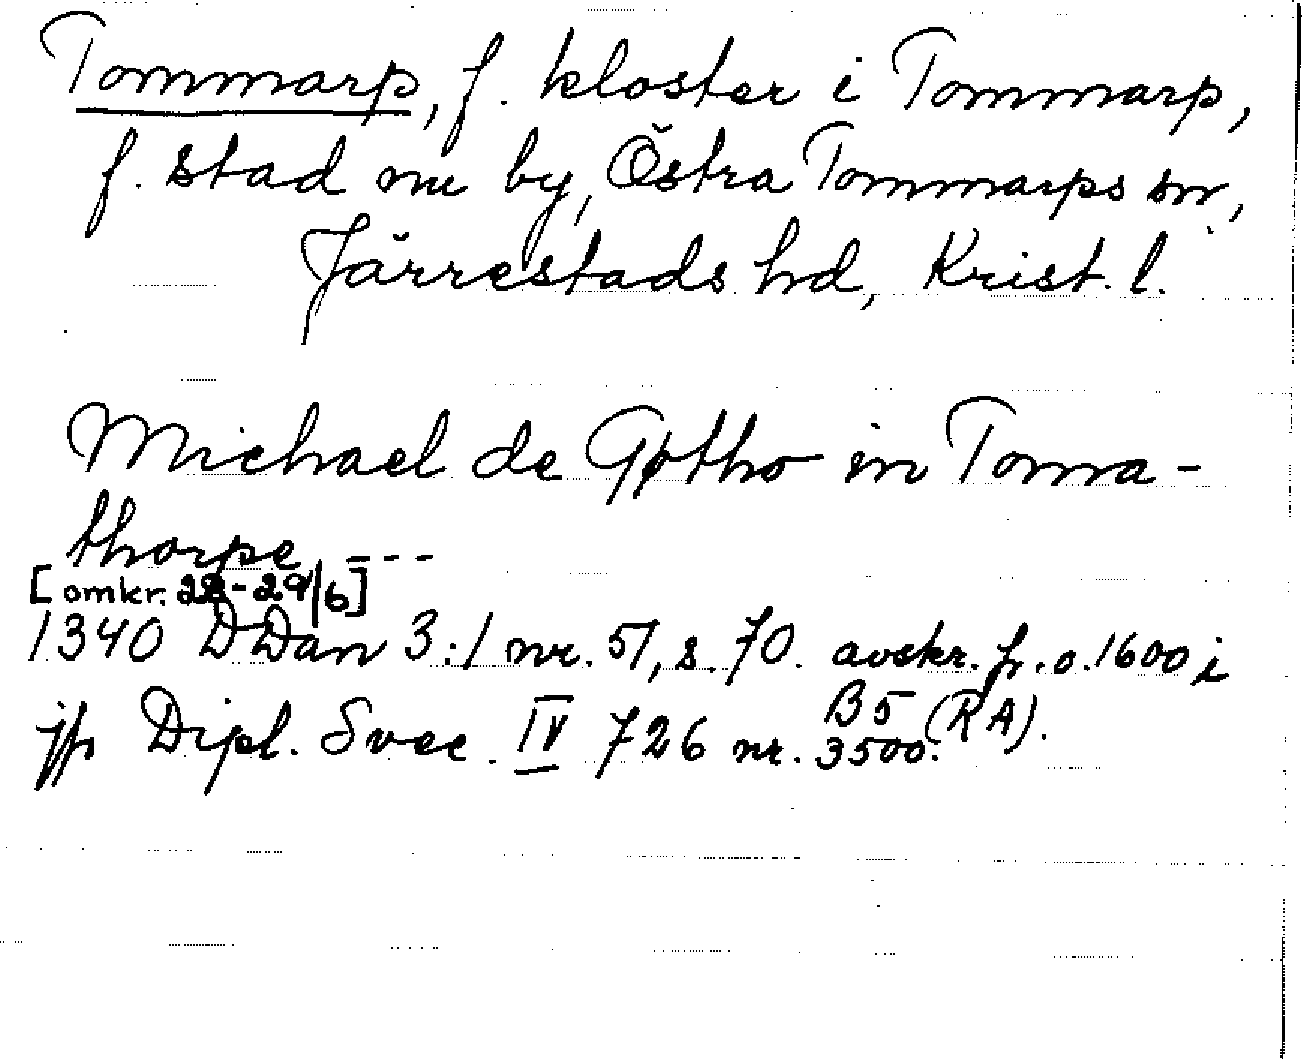 Tommarp, f. kloster i Tommarp,
f. stad nu by, Östra Tommarps sn,
Järrestads hd, Krist. l.
Michael de Gøtho in Toma-
thorpe ---
[omkr. 22-29/6]
1340 DDan 3:1 nr. 51, s. 70. avskr. fr. o. 1600 i
jfr Dipl. Svec. IV 726 nr. 3500. B5 (RA).